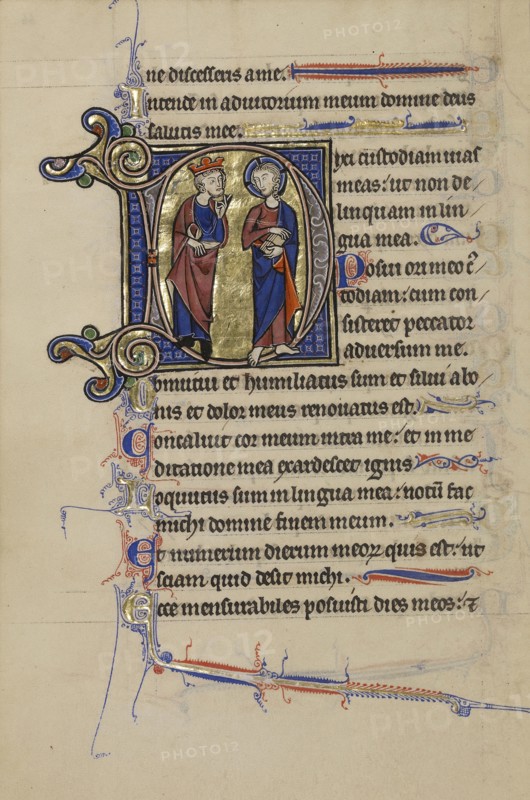 ne discesseris a me.
Intende in adiutorium meum domine deus
salutis mee.
Dixi custodiam uias
meas: ut non de
linquam in lin
gua mea.
Posui ori meo c̄
todiam: cum con
sisteret peccator
aduersum me.
Obmutui et humiliatus sum et silui a bo
nis et dolor meus renouatus est.
Concaluit cor meum intra me: et in me
ditatione mea exardescet ignis
Loquutus sum in lingua mea: notū fac
michi domine finem meum.
Et numerum dierum meoꝝ quis est: ut
sciam quid desit michi.
Ecce mensurabiles posuisti dies meos: ⁊
PHOTO12
PHOTO12
PHOTO12
PHOTO12